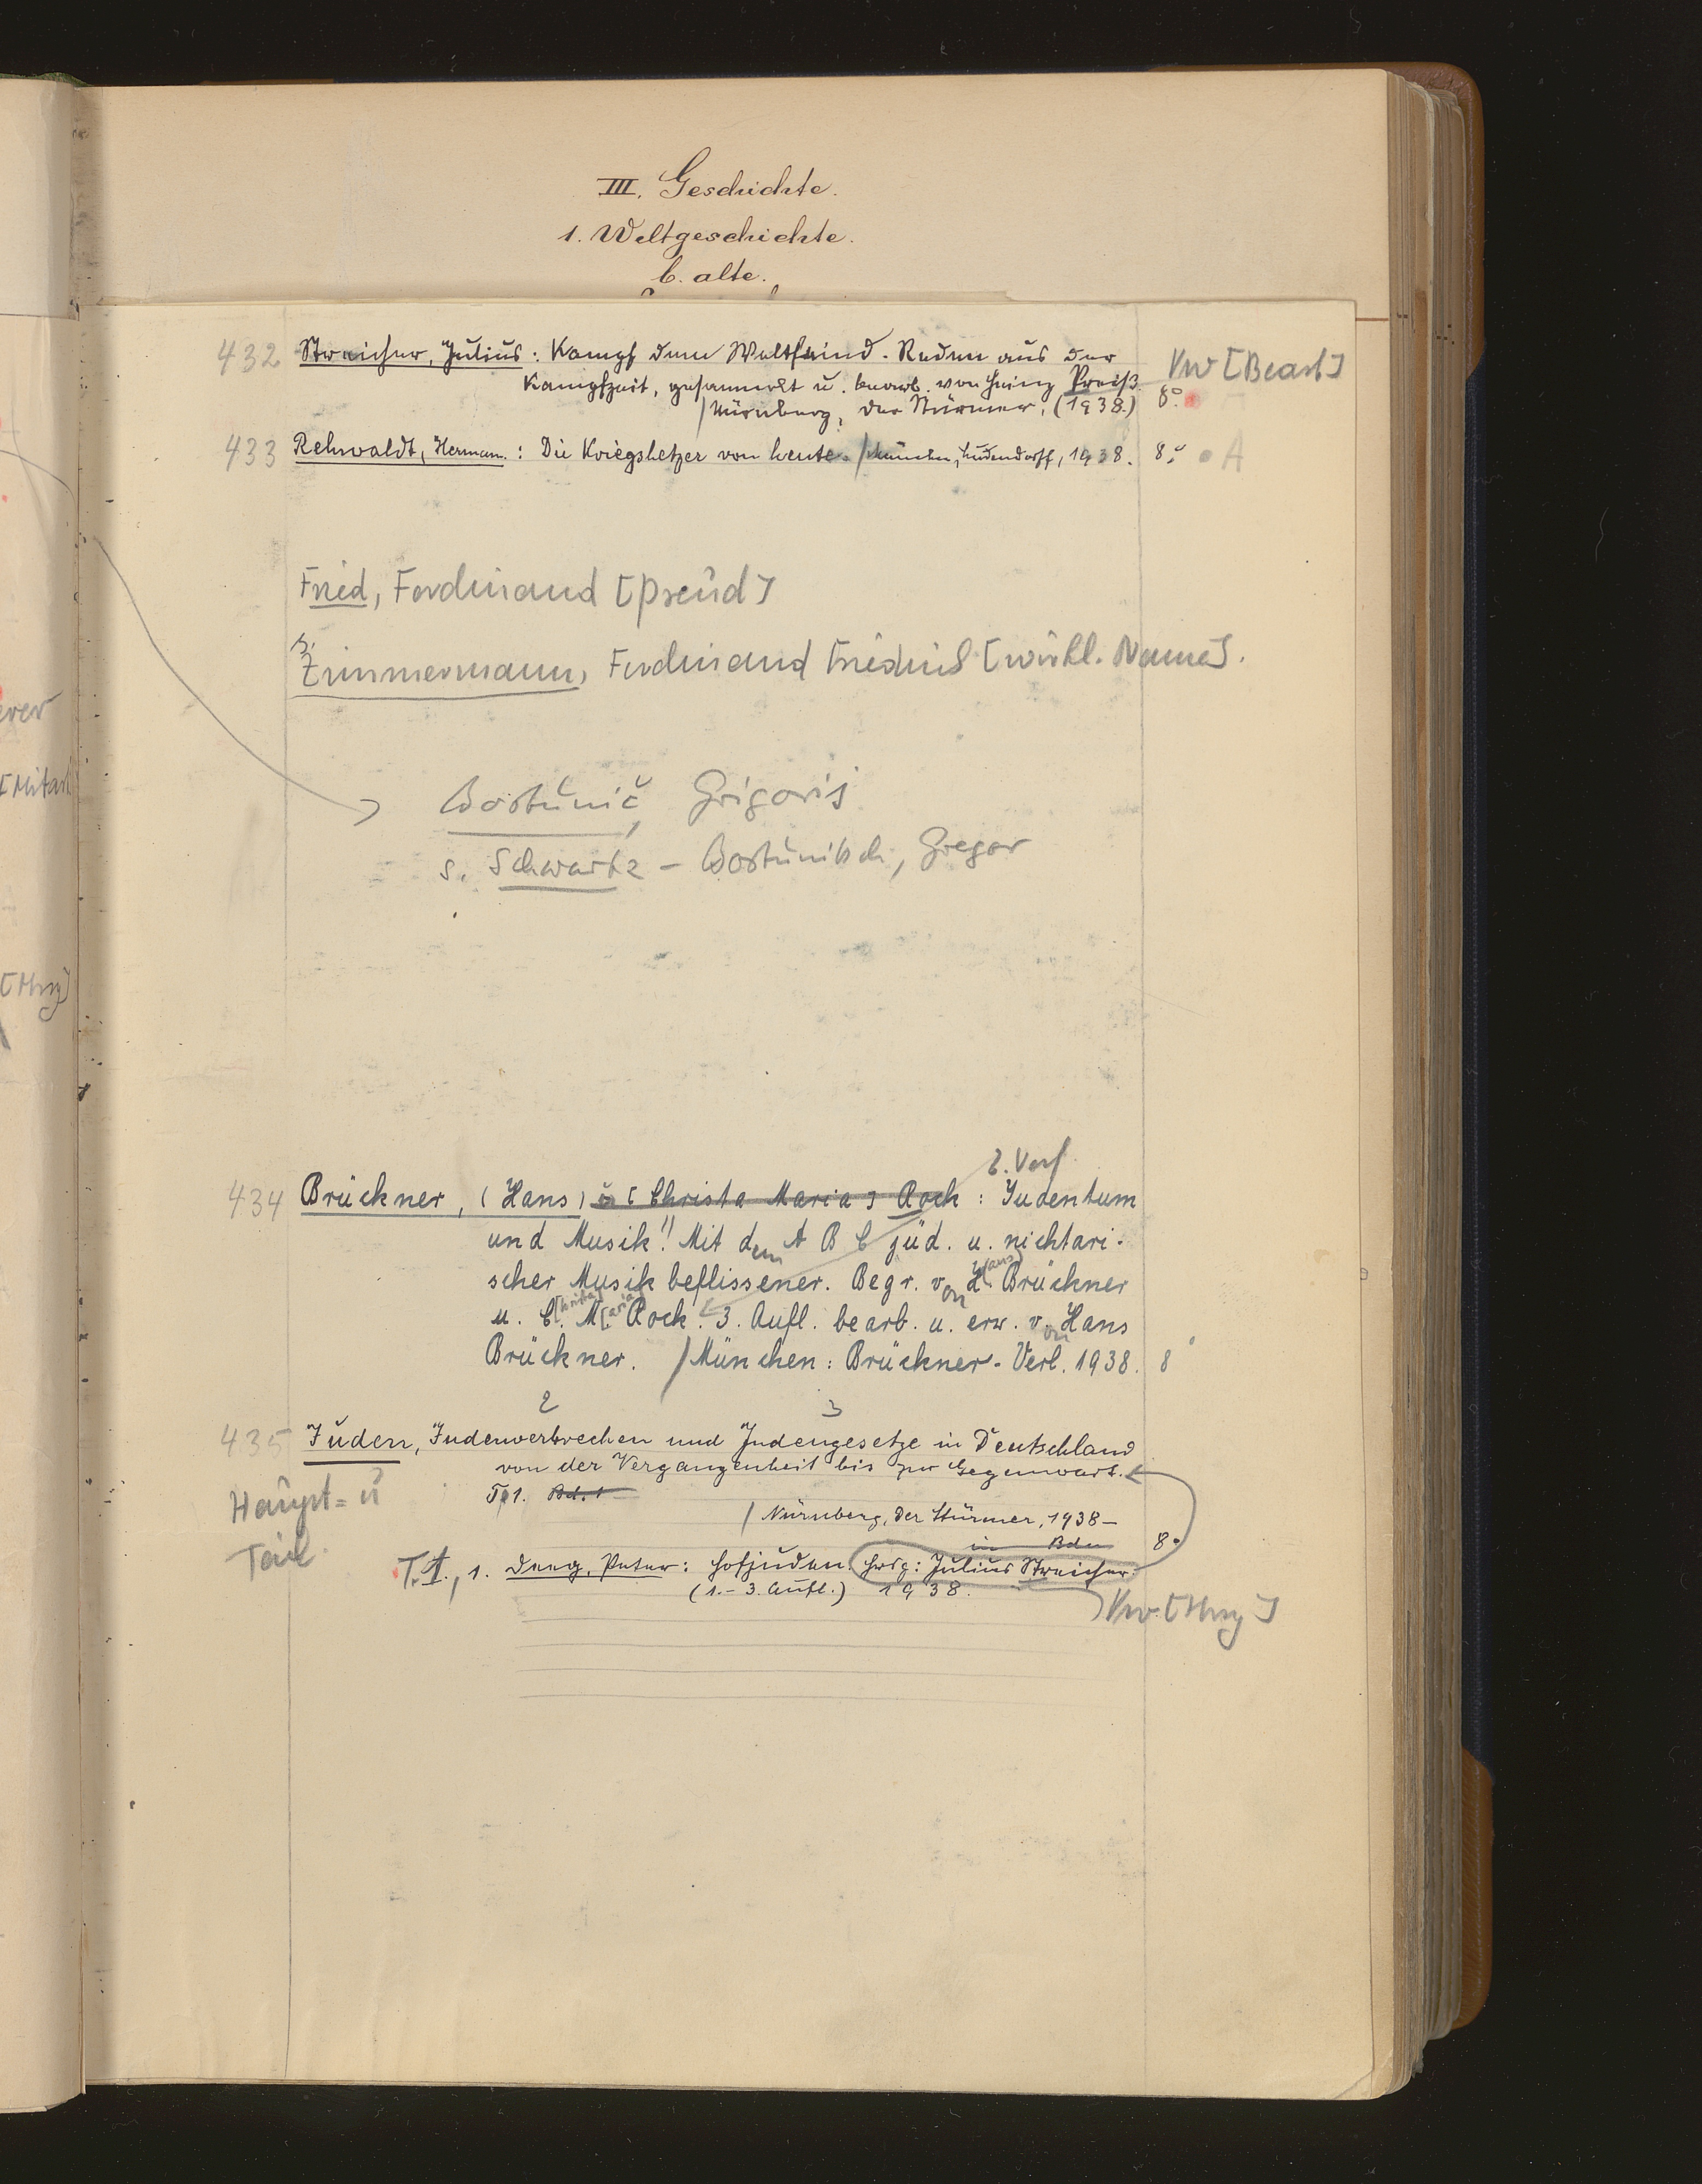 III. Geschichte.
1. Weltgeschichte.
b. alte.
432 Streicher, Julius: Kampf dem Weltfeind. Reden aus der
Kampfzeit, gesammelt u. bearb. von Heinz Preiß. Vw [Bearb]
/Nürnberg, Der Stürmer, (1938.) 8°.
433 Rehwaldt, Hermann.: Die Kriegshetzer von heute. /München, Ludendorff, 1938. 8°. A
Fried, Ferdinand [Pseud]
s. Zimmermann, Ferdinand Friedrich [wirkl. Name].
Bostunič, Grigorij
s. Schwartz - Bostunitsch, Gregor
2. Verf
434 Brückner, (Hans) u [Christa Maria] Rock: Judentum
und Musik! Mit dem A B C jüd. u. nichtari-
scher Musikbeflissener. Begr. von H[ans] Brückner
u. C[hrista] M[aria] Rock. 3. Aufl. bearb. u. erw. von Hans
Brückner. /München: Brückner-Verl. 1938. 8°
2 3
435 Juden, Judenverbrechen und Judengesetze in Deutschland
von der Vergangenheit bis zur Gegenwart.
Haupt= u
T 1. Bd. 1
/Nürnberg, Der Stürmer, 1938-
in Bden 8°
Teil.
T. 1., 1. Deeg, Peter: Hofjuden. Hrsg: Julius Streicher.
(1.-3. Aufl.) 1938.
Vw. [Hrsg]
erer
[Mitarb
[Hrsg]